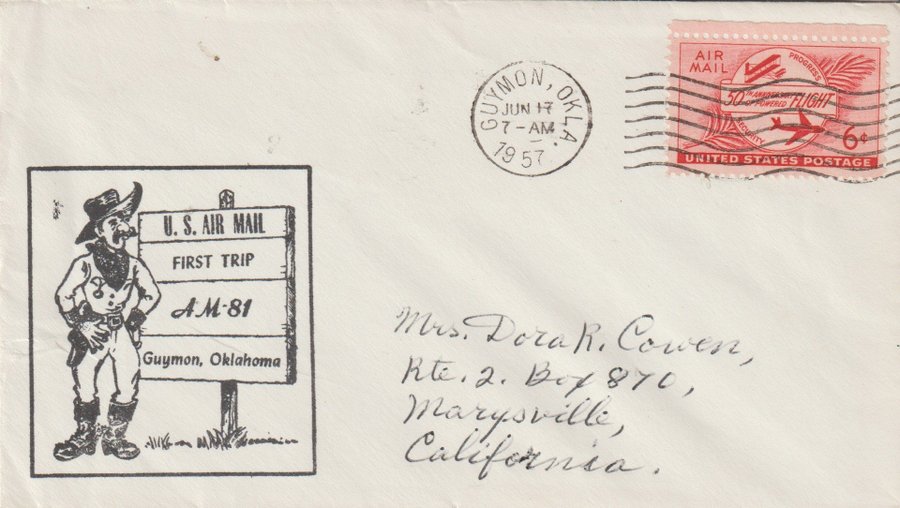 GUYMON, OKLA.
JUN 17
7-AM
1957
AIR
MAIL
PROGRESS
50TH ANNIVERSARY
OF POWERED
FLIGHT
SECURITY
6¢
UNITED STATES POSTAGE
U. S. AIR MAIL
FIRST TRIP
AM-81
Guymon, Oklahoma
Mrs. Dora R. Cowen,
Rte. 2. Box 870,
Marysville,
California.